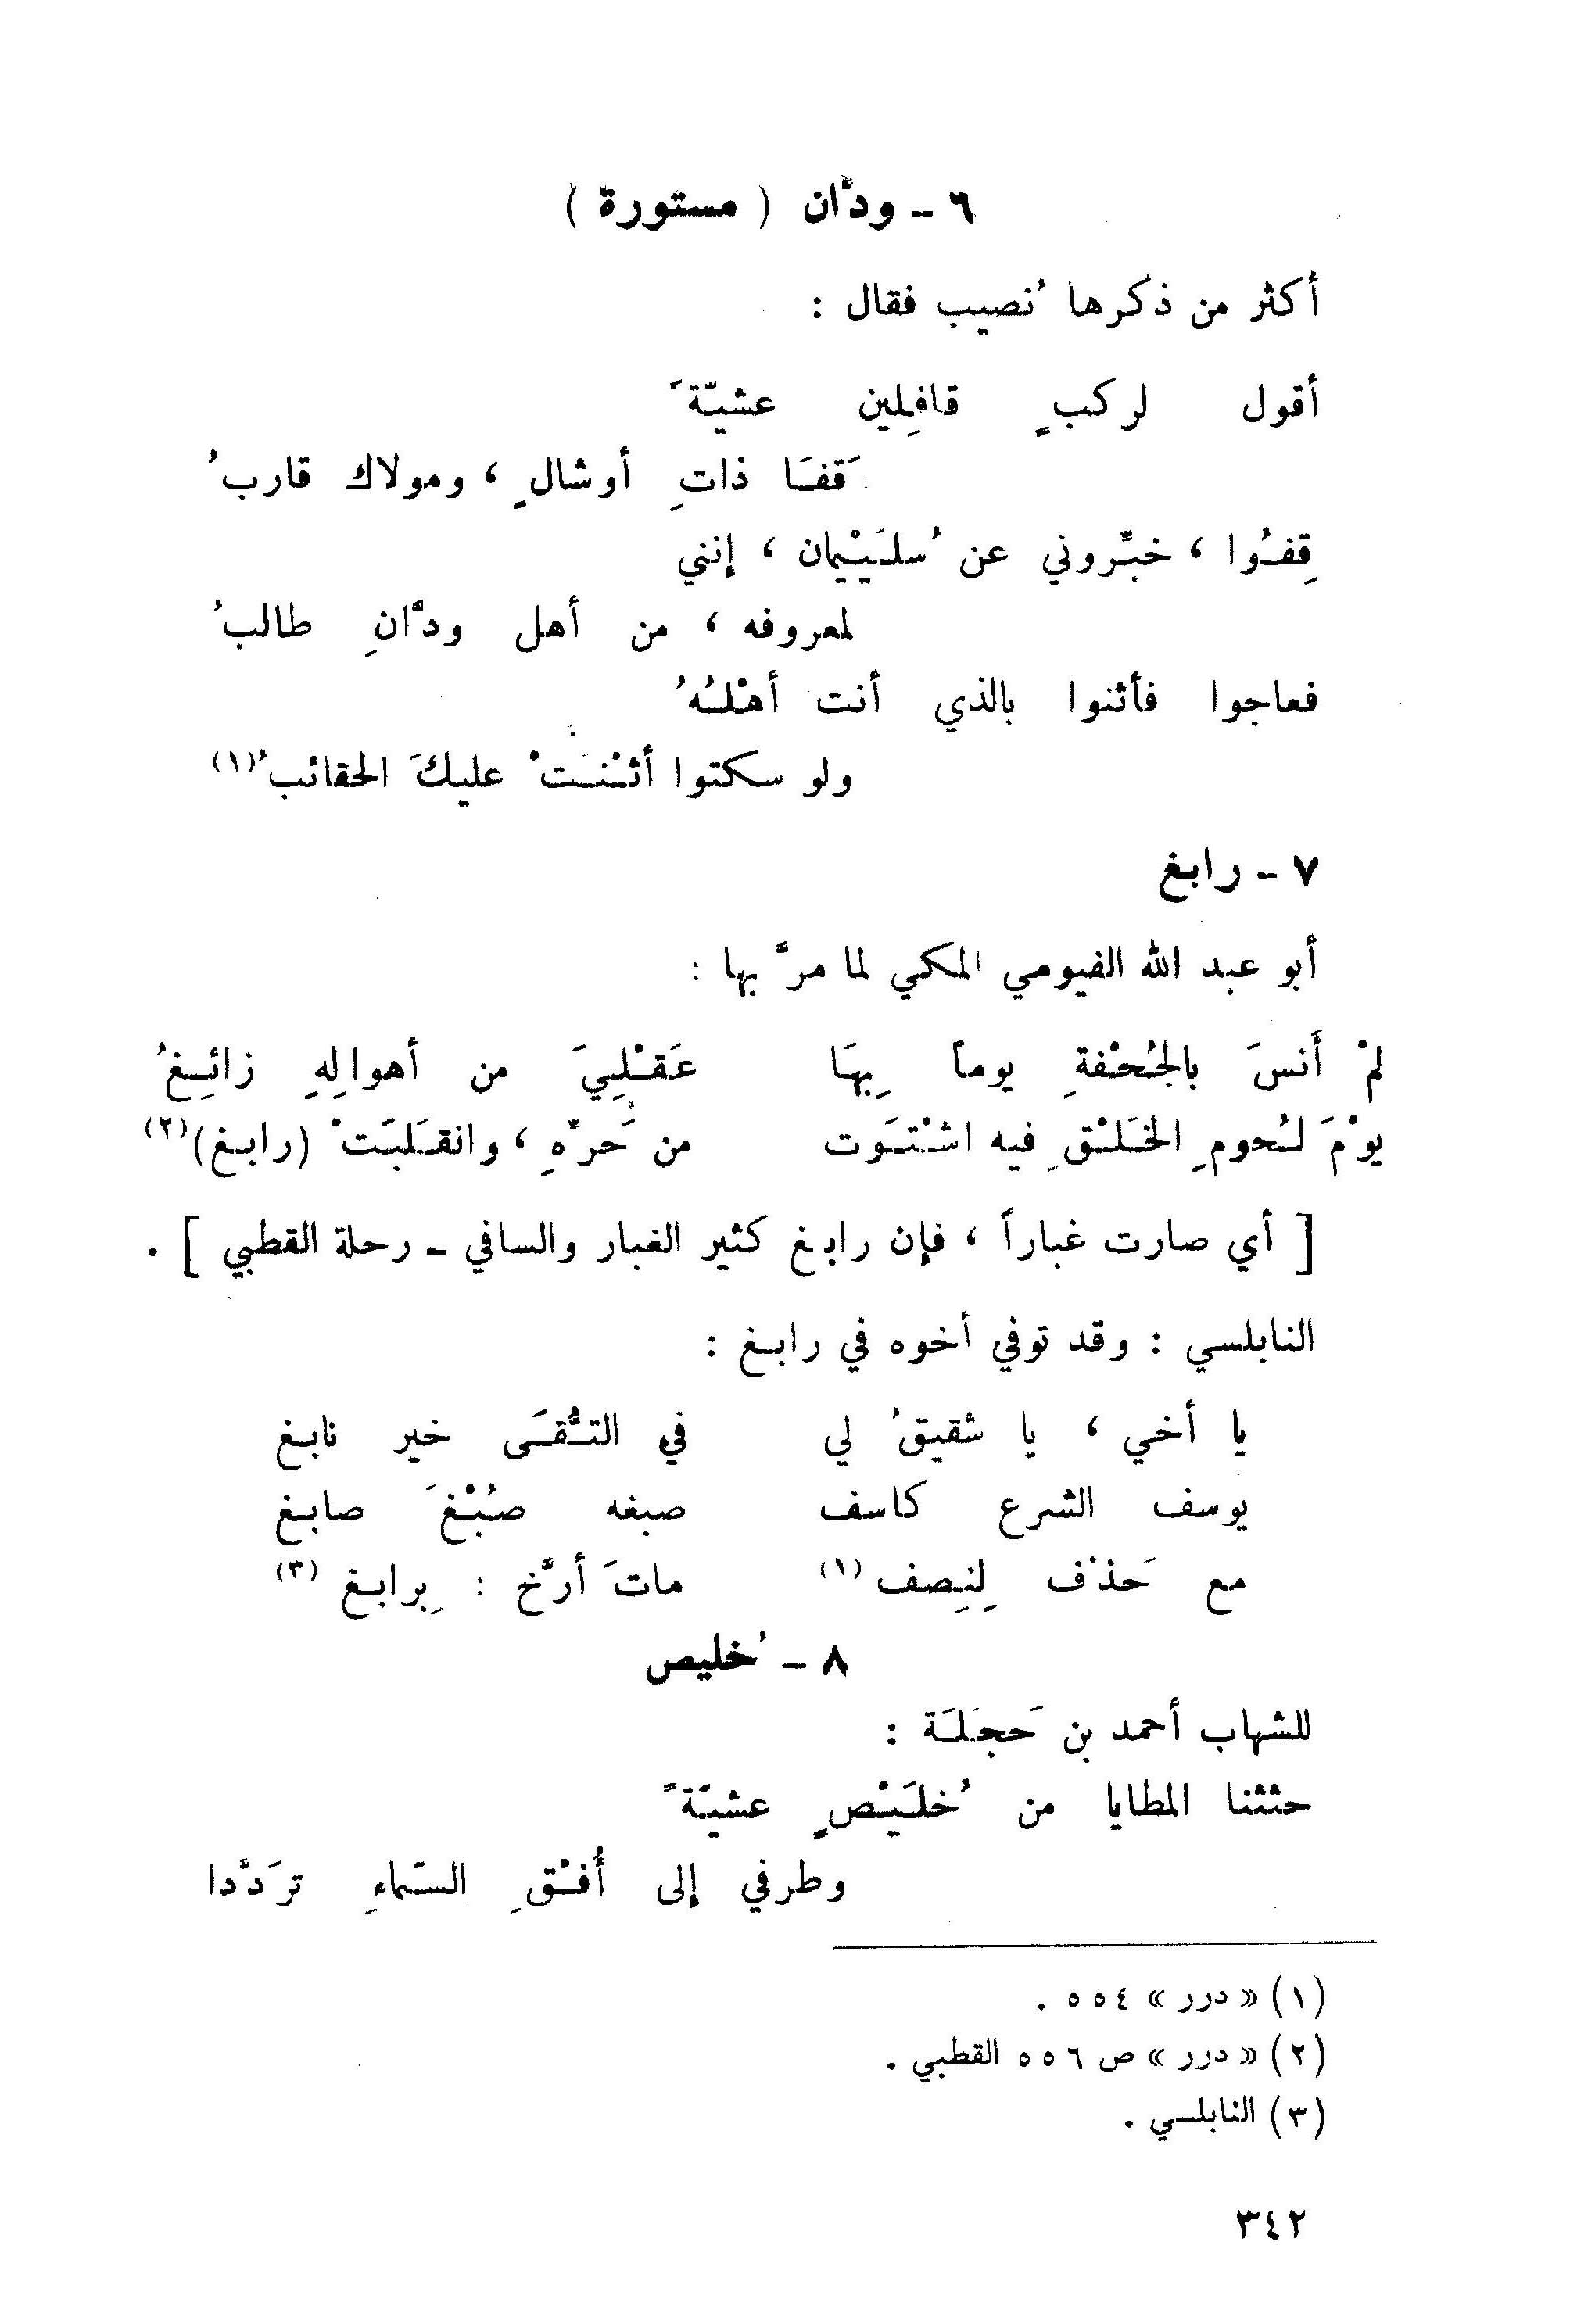 ٦ - ودَّان ( مستورة )
أكثر من ذكرها نُصيب فقال :
أقول لركبٍ قافِلين عشيّةَ
قَفَا ذاتِ أوشالٍ ، ومولاك قاربُ
قِفُوا ، خبِّروني عن سُلَيْيمان ، إنني
لمعروفه ، من أهل ودَّانِ طالبُ
فعاجوا فأثنوا بالذي أنت أهْلُهُ
ولو سكتوا أثْنَتْ عليكَ الحقائبُ(١)
٧ - رابغ
أبو عبد الله الفيومي المكي لما مرَّ بها :
لمْ أَنسَ بالجُحْفةِ يوماً بِهَا عَقْلِيَ من أهوالِهِ زائِغُ
يوْمَ لُحومِ الخَلْقِ فيه اشْتَوَت من حَرِّهِ ، وانقَلَبَتْ (رابغ)(٢)
[ أي صارت غباراً ، فإن رابغ كثير الغبار والسافي - رحلة القطبي ] .
النابلسي : وقد توفي أخوه في رابغ :
يا أخي ، يا شقيقُ لي في التُّقَى خير نابغ
يوسف الشرع كاسف صبغه صُبْغَ صابغ
مع حَذْف لِنِصف (١) ماتَ أرَّخ : بِرابغ (٣)
٨ - خُليص
للشهاب أحمد بن حَجَلَة :
حثثنا المطايا من خُلَيْصٍ عشيّةً
وطرفي إلى أُفْقِ السّماءِ تردَّدا
(١) « درر » ٥٥٤ .
(٢) « درر » ص ٥٥٦ القطبي .
(٣) النابلسي .
٣٤٢